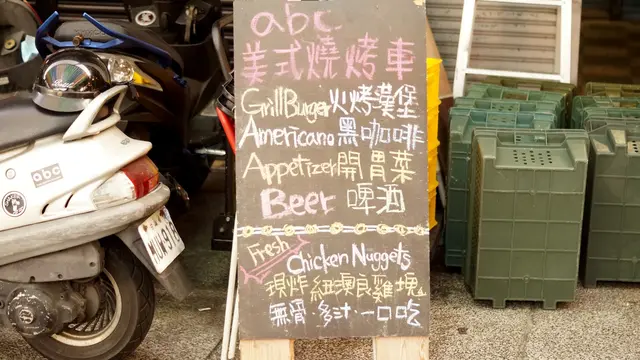 abc
美式燒烤車
Grill Burger 火烤漢堡
Americano 黑咖啡
Appetizer 開胃菜
Beer 啤酒
Fresh
Chicken Nuggets
現炸 紐澳良雞塊
無骨·多汁·一口吃
abc